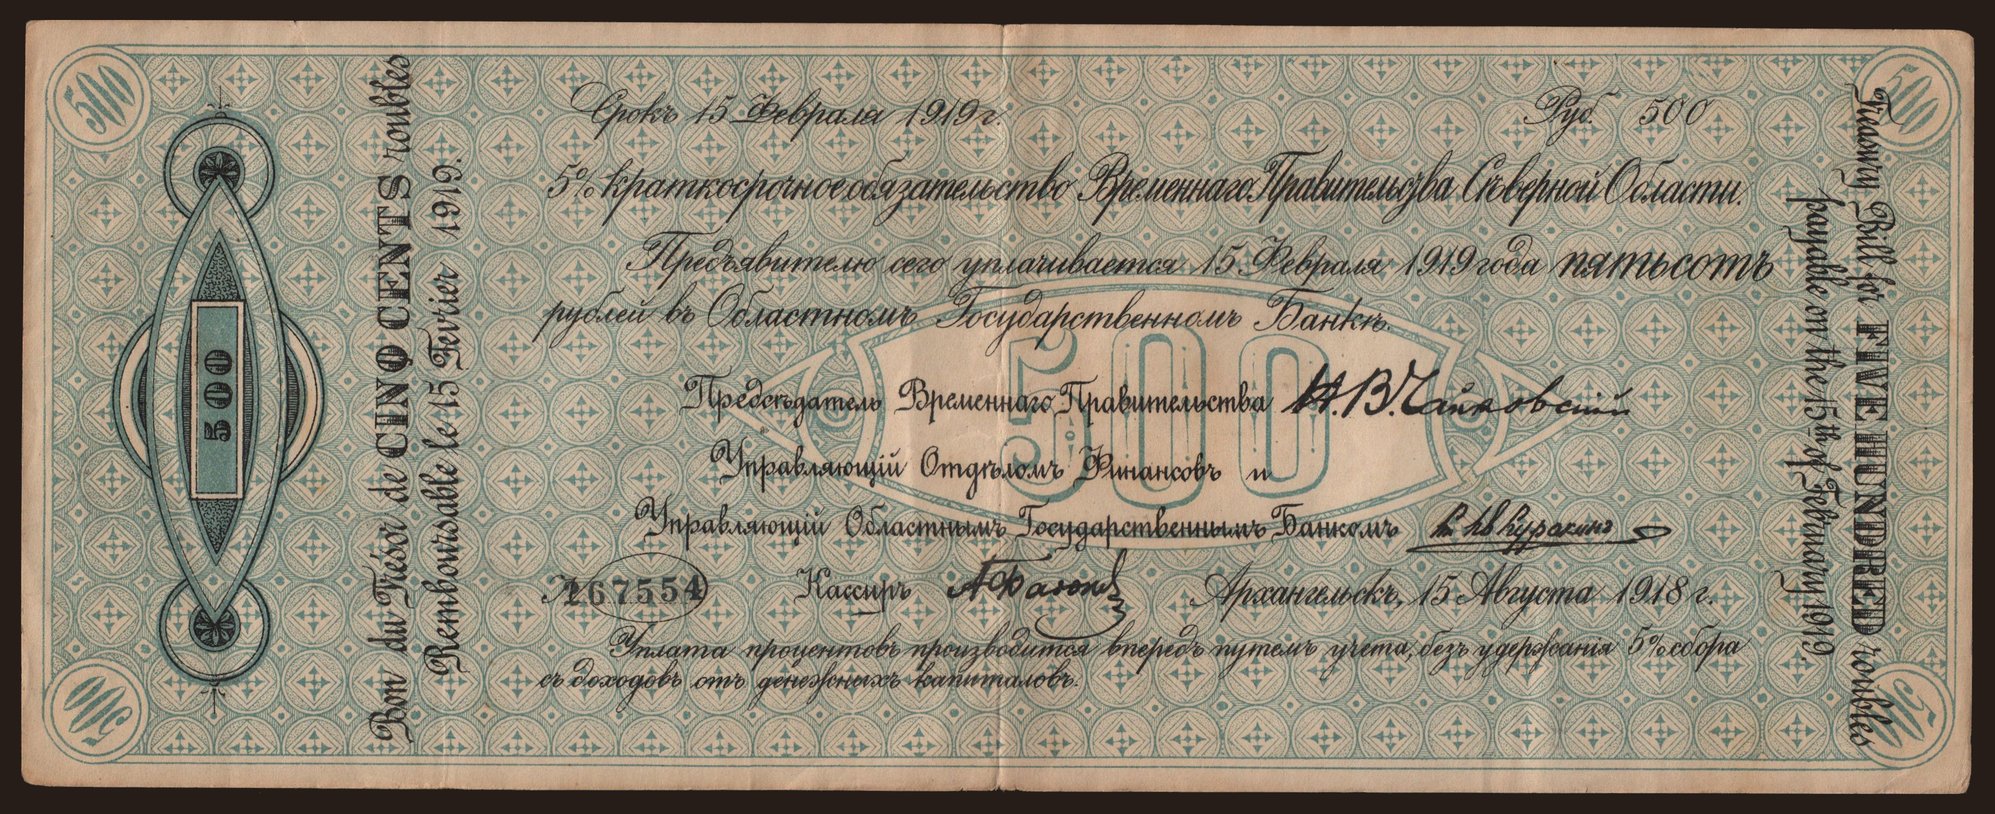 500
500
Срокъ 15 Февраля 1919 г. Руб. 500
5% краткосрочное обязательство Временнаго Правительства Сѣверной Области.
Предъявителю сего уплачивается 15 Февраля 1919 года пятьсотъ
рублей въ Областномъ Государственномъ Банкѣ.
500
Предсѣдатель Временнаго Правительства Н.В.Чайковскій
Управляющій Отдѣломъ Финансовъ и
Управляющій Областнымъ Государственнымъ Банкомъ кн Ив Куракинъ
№ 167554 Кассиръ Архангельскъ, 15 Августа 1918 г.
Уплата процентовъ производится впередъ путемъ учета, безъ удержания 5% сбора
съ доходовъ отъ денежныхъ капиталовъ.
500
Bon du Trésor de CINQ CENTS roubles
Remboursable le 15 Fevrier 1919.
Treasury Bill for FIVE HUNDRED roubles
payable on the 15th of February 1919.
500
500